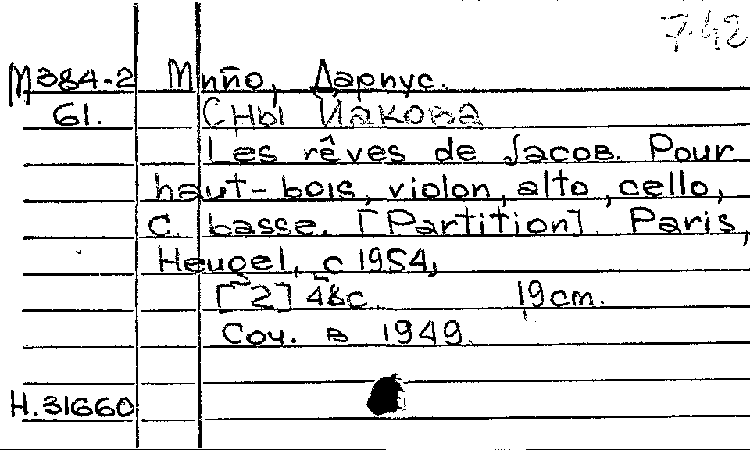 742
М384-2 Мийо, Дариус.
61. Сны Иакова
Les rêves de Jacob. Pour
haut-bois, violon, alto, cello,
C. basse. [Partition]. Paris,
Heugel, c 1954,
[2] 48c. 19cm.
Соч. в 1949.
Н.31660